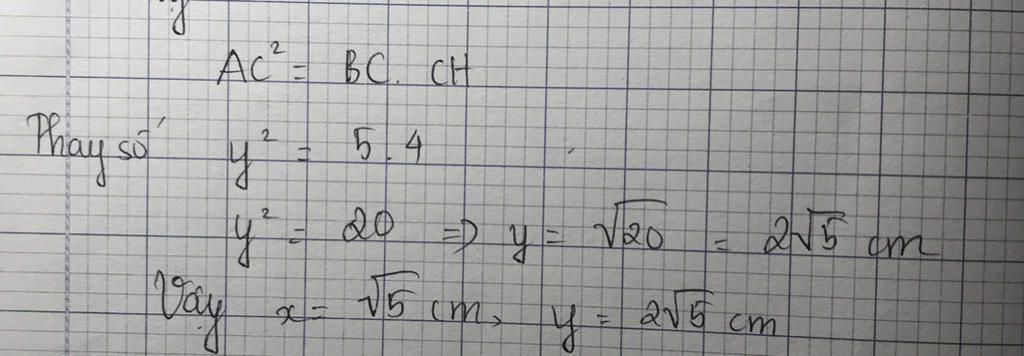 AC² = BC. CH
Thay số y² = 5.4
y² = 20 => y = √20 = 2√5 cm
Vậy x = √5 cm, y = 2√5 cm